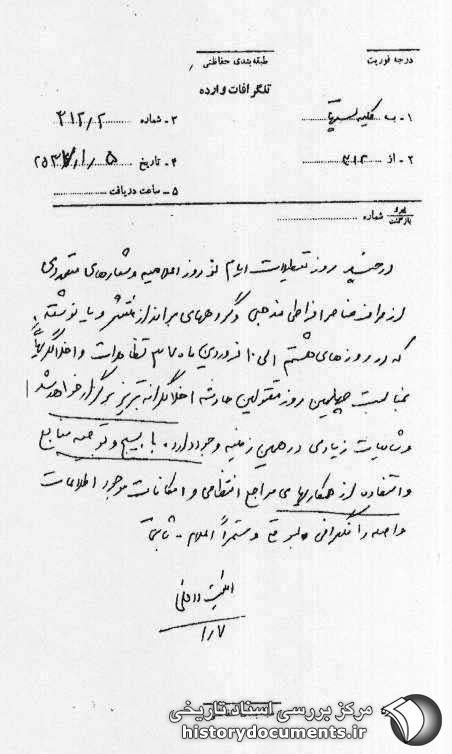 درجه فوریت
طبقه‌بندی حفاظتی
تلگرافات وارده
۱ـ ب کلیه
۳ـ شماره ۳۱۲/۲
۲ـ از ۳۱۲
۴ـ تاریخ ۵/۱/
۵ـ ساعت دریافت
بازگشت شماره
در چند روز تعطیلات ایام نوروز اعلامیه و شعارهای متعددی
از طرف عناصر افراطی مذهبی و گروههای برانداز منتشر و یا نوشته
که در روزهای هشتم الی ۱۰ فروردین ماه ۳۷ تظاهرات و اخلالگریهائی
بمناسبت چهلمین روز مقتولین حادثه اخلالگرانه تبریز برگزار خواهد شد
و شایعات زیادی در همین زمینه وجود دارد. با بسیج و توجیه منابع
و استفاده از همکاریهای مراجع انتظامی و امکانات موجود اطلاعات
واصله را تلگرافی بموقع و مستمراً اعلام. ثابتی
امنیت داخلی
۱/۷
مرکز بررسی اسناد تاریخی
historydocuments.ir